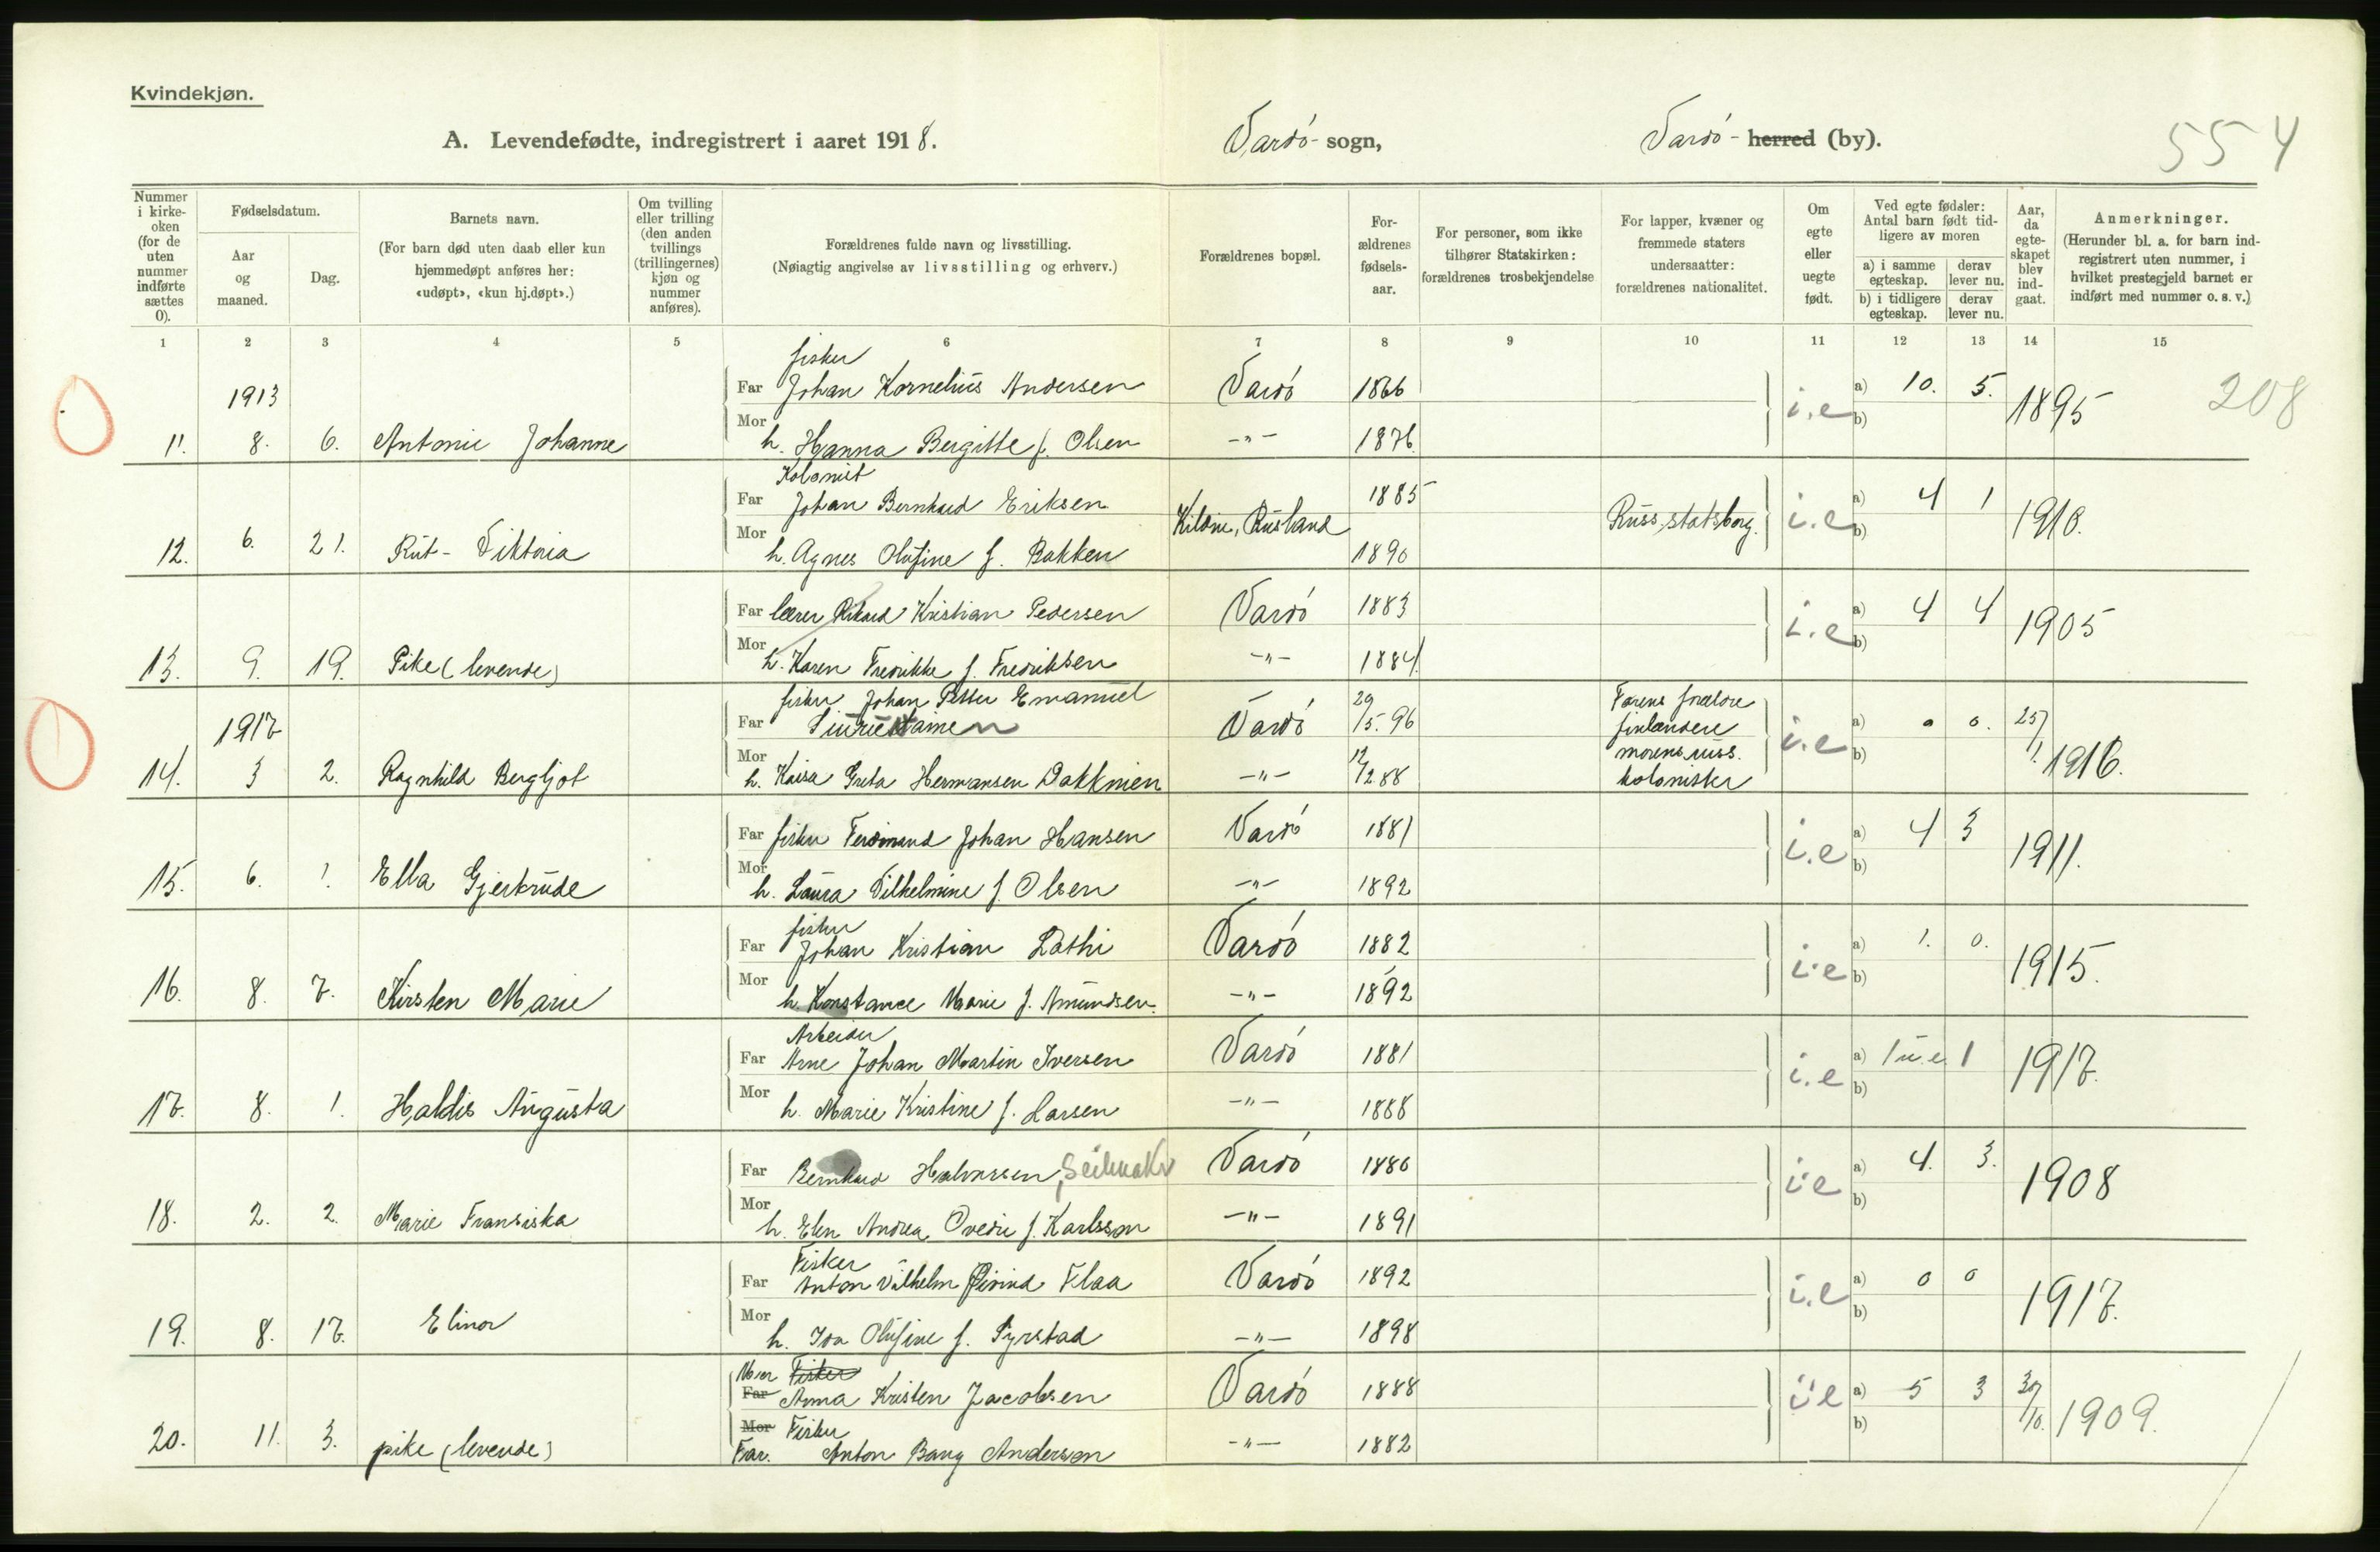 Kvindekjøn.
A. Levendefødte, indregistrert i aaret 1918.
Vardö- sogn,
Vardö- herred (by).
554
Nummer i kirke-oken (for de uten nummer indførte sættes 0).
Fødselsdatum.
Aar og maaned.
Dag.
Barnets navn.
(For barn død uten daab eller kun hjemmedøpt anføres her: «udøpt», «kun hj.døpt».)
Om tvilling eller trilling (den anden tvillings (trillingernes) kjøn og nummer anføres).
Forældrenes fulde navn og livsstilling.
(Nøiagtig angivelse av livsstilling og erhverv.)
Forældrenes bopæl.
For-ældrenes fødsels-aar.
For personer, som ikke tilhører Statskirken: forældrenes trosbekjendelse
For lapper, kvæner og fremmede staters undersaatter: forældrenes nationalitet.
Om egte eller uegte født.
Ved egte fødsler: Antal barn født tid-ligere av moren
a) i samme egteskap.
derav lever nu.
b) i tidligere egteskap.
derav lever nu.
Aar, da egte-skapet blev ind-gaat.
Anmerkninger.
(Herunder bl. a. for barn ind-registrert uten nummer, i hvilket prestegjeld barnet er indført med nummer o. s. v.)
1 2 3 4 5 6 7 8 9 10 11 12 13 14 15
fisker
1913 Far Johan Kornelius Andersen Vardö 1866 i.e a) 10. 5. 1895 208
11. 8. 6. Antonie Johanne Mor h. Hanna Bergitte f. Olsen -"- 1876. b)
Kolonist
Far Johan Bernhard Eriksen Kildin, Rusland 1885 Russ. statsborg. i.e a) 4 1 1910.
12. 6. 21. Rut- Viktoria Mor h. Agnes Olufine f. Bakken 1890 b)
Far lærer Rikard Kristian Pedersen Vardö 1883 i.e a) 4 4 1905
13. 9. 19. Pike (levende) Mor h. Karen Fredrikke f. Fredriksen -"- 1884. b)
fisker Johan Petter Emanuel
1917 Far Vardö 29/5.96 Farens forældre finlændere i.e a) 0 0. 25/1. 1916.
14. 3 2. Ragnhild Bergljot Mor h. Kaisa Greta Hermansen -"- 12/2 88 morens russ. kolonister b)
Far fisker Ferdinand Johan Hansen Vardö 1881 i.e a) 4 3 1911.
15. 6. 1. Ella Gjertrude Mor h. Laura Vilhelmine f. Olsen -"- 1892 b)
fisker
Far Johan Kristian Lathi Vardö 1882 i.e a) 1. 0. 1915.
16. 8. 7. Kirsten Marie Mor h. Konstance Marie f. Amundsen. -"- 1892 b)
Arbeider
Far Arne Johan Martin Iversen Vardö 1881 i.e a) 1 u.e. 1 1917.
17. 8. 1. Haldis Augusta Mor h. Marie Kristine f. Larsen -"- 1888 b)
Far Bernhard Halvorsen, Seilmaker Vardö 1886 i.e a) 4. 3. 1908
18. 2. 2. Marie Fransiska Mor h. Elen Andrea Ovedie f. Karlsson -"- 1891 b)
Fisker
Far Anton Vilhelm Øivind Flaa Vardö 1892 i.e a) 0 0 1917.
19. 8. 17. Elinor Mor h. Ida Olufine f. Syrstad -"- 1898 b)
Mor Fisker
Far Anna Kristen Jacobsen Vardö 1888 i.e a) 5 3 30/10. 1909.
Mor Fisker b)
20. 11. 3. pike (levende) Far. Anton Bang Anderson -"- 1882